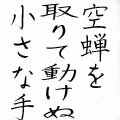 空蝉を
取りて動けぬ
小さな手